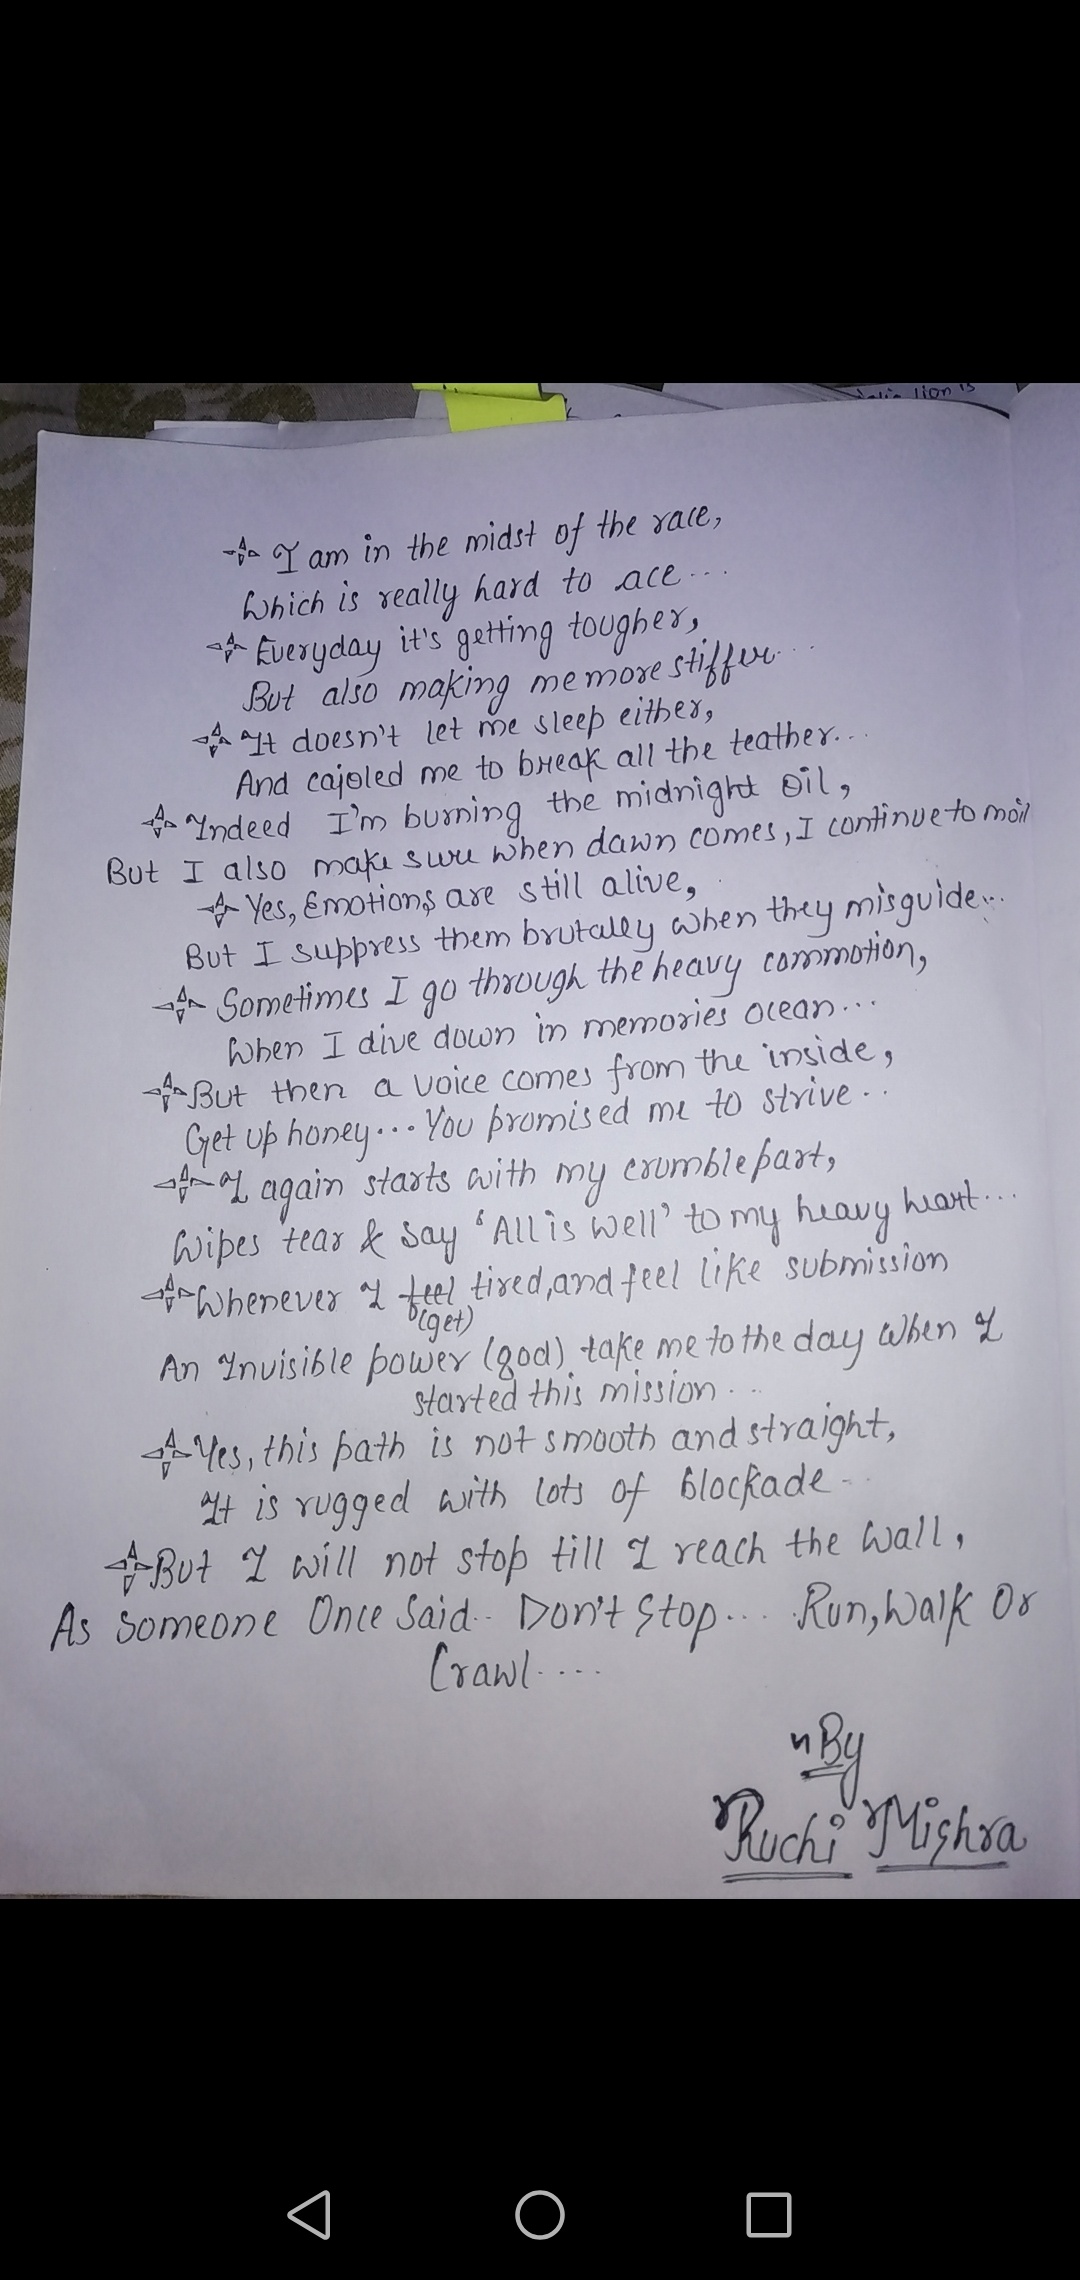 I am in the midst of the race,
Which is really hard to ace...
Everyday it's getting tougher,
But also making me more stiffer...
It doesn't let me sleep either,
And cajoled me to break all the teather...
Indeed I'm burning the midnight oil,
But I also make sure when dawn comes, I continue to moil
Yes, Emotions are still alive,
But I suppress them brutally when they misguide...
Sometimes I go through the heavy commotion,
When I dive down in memories ocean...
But then a voice comes from the inside,
Get up honey... You promised me to strive..
I again starts with my crumble part,
Wipes tear & Say 'All is well' to my heavy heart...
Whenever I feel tired, and feel like submission
(get)
An Invisible power (god) take me to the day when I
started this mission...
Yes, this path is not smooth and straight,
It is rugged with lots of blockade..
But I will not stop till I reach the wall,
As Someone Once Said.. Don't Stop... Run, Walk Or
Crawl....
By
Ruchi Mishra